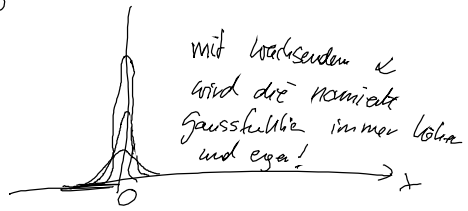 mit wachsendem α
wird die normierte
Gaussfunktion immer höher
und enger!
x
0